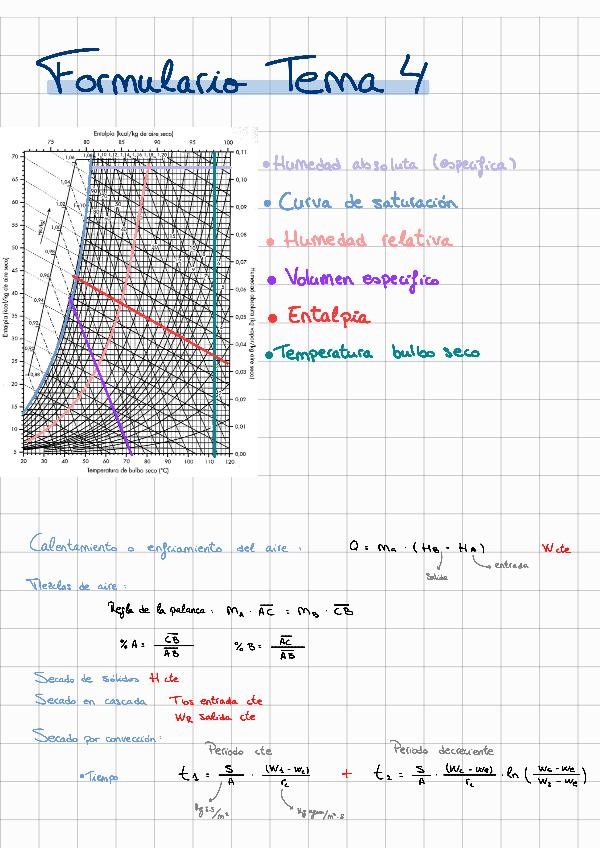 Formulario Tema 4
Entalpía (kcal/kg de aire seco)
75 80 85 90 95 100
Entalpía (kcal/kg de aire seco)
70
65
60
55
50
45
40
35
30
25
20
15
10
5
0,11
0,10
0,09
0,08
0,07
0,06
0,05
0,04
0,03
0,02
0,01
0,00
20 30 40 50 60 70 80 90 100 110 120
Temperatura de bulbo seco (°C)
• Humedad absoluta (específica)
• Curva de saturación
• Humedad relativa
• Volumen específico
• Entalpía
• Temperatura bulbo seco
Calentamiento o enfriamiento del aire : Q = ma · (HB - HA) Wcte
salida entrada
Mezclas de aire :
Regla de la palanca : MA · AC = MB · CB
% A = CB / AB % B = AC / AB
Secado de sólidos H cte
Secado en cascada Tbs entrada cte
WR salida cte
Secado por convección:
Período cte Período decreciente
• Tiempo t1 = S/A · (W1 - Wc)/rc + t2 = S/A · (Wc - We)/rc · ln (Wc - We / W2 - We)
kg s.s/m² kg agua/m²·s